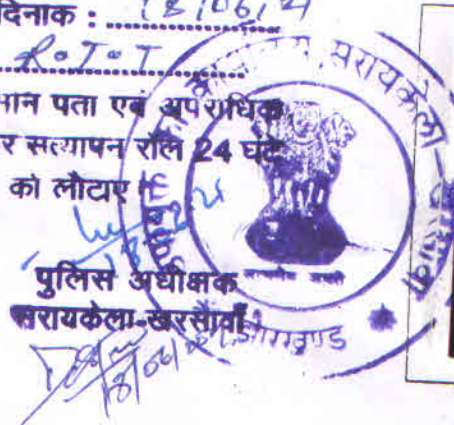 दिनाक : 18/06/21
R.I.T
मान पता एवं अपराधिक
र सत्यापन रोल 24 घंटे
को लौटाए
पुलिस अधीक्षक
सरायकेला-खरसावाँ
सरायकेला
झारखण्ड